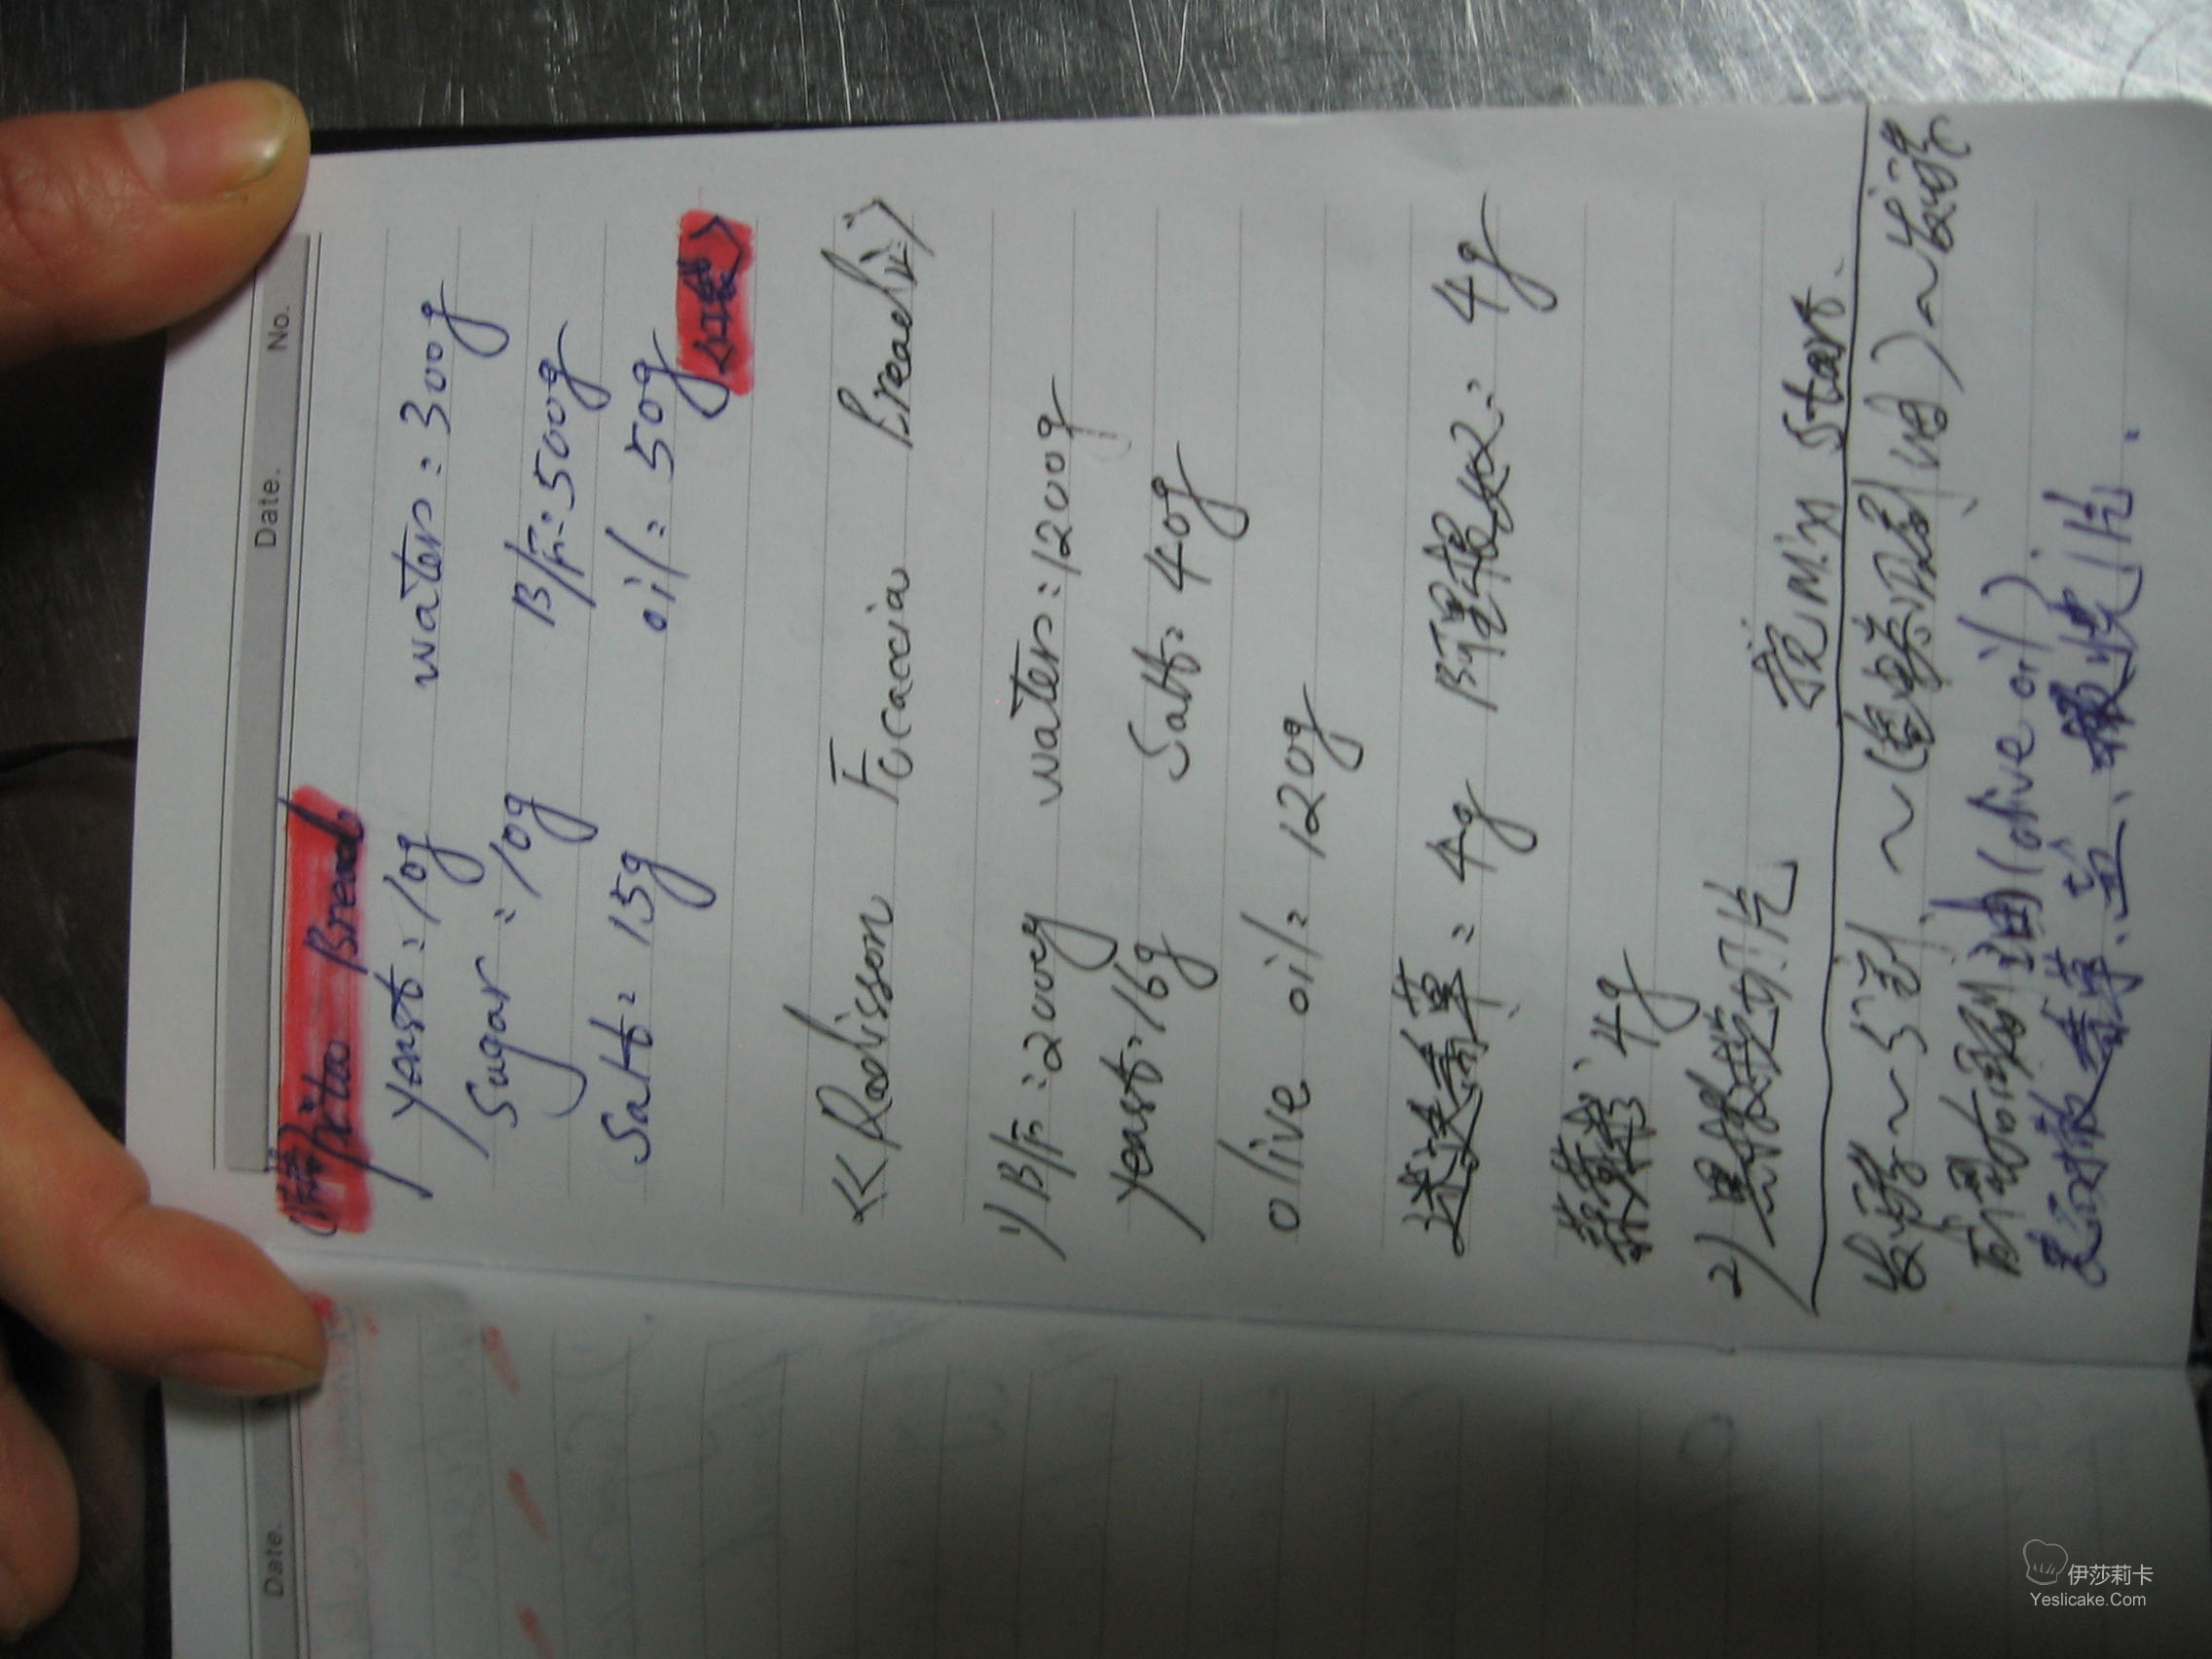 Date. No.
pita Bread
yeast: 10g water: 300g
Sugar: 10g B/F: 500g
Salt: 15g oil: 50g
<<Radisson Focaccia Bread>>
1) B/F: 2000g water: 1200g
yeast: 16g Salt: 40g
olive oil: 120g
迷迭香草: 4g 阿里根奴: 4g
4g
2) 黑橄榄切片
Mix Start.
发酵~分割~ ~发酵
油 (olive oil)
Date.
伊莎莉卡
Yeslicake.Com